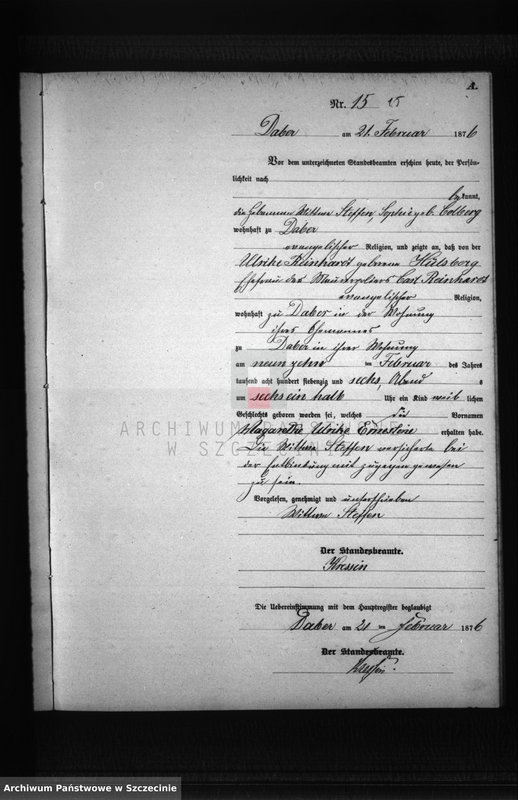 A.
Nr. 15 15
Daber am 21. Februar 1876
Vor dem unterzeichneten Standesbeamten erschien heute, der Persön-
lichkeit nach
bekannt,
die Hebamme Wittwe Steffen, Sophie geb. Colberg
wohnhaft zu Daber
evangelischer Religion, und zeigte an, daß von der
Ulrike Reinhardt geborene Hulsberg
Ehefrau des Maurerpoliers Carl Reinhardt
evangelischer Religion,
wohnhaft zu Daber in der Wohnung
ihres Ehemannes
zu Daber in ihrer Wohnung
am neunzehn ten Februar des Jahres
tausend acht hundert siebenzig und sechs, Abend s
um sechs ein halb Uhr ein Kind weib lichen
Geschlechts geboren worden sei, welches die Vornamen
Magarethe Ulrike Ernestine erhalten habe.
Die Wittwe Steffen versicherte bei
der Entbindung mit zugegen gewesen
zu sein.
Vorgelesen, genehmigt und unterschrieben
Wittwe Steffen
Der Standesbeamte.
Kressin
Die Uebereinstimmung mit dem Hauptregister beglaubigt
Daber am 21 ten Februar 1876
Der Standesbeamte.
Kressin.
ARCHIWUM PAŃSTWOWE
W SZCZECINIE
Archiwum Państwowe w Szczecinie